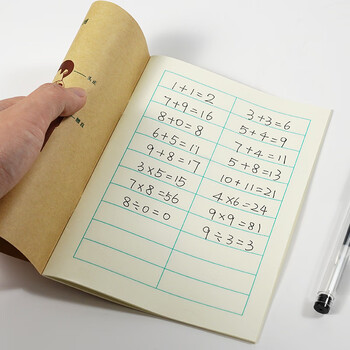 1+1=2
7+9=16
8+0=8
6+5=11
9+8=17
3×5=15
7×8=56
8÷0=0
3+3=6
5+4=9
7+4=11
5+8=13
10+11=21
4×6=24
9×9=81
9÷3=3